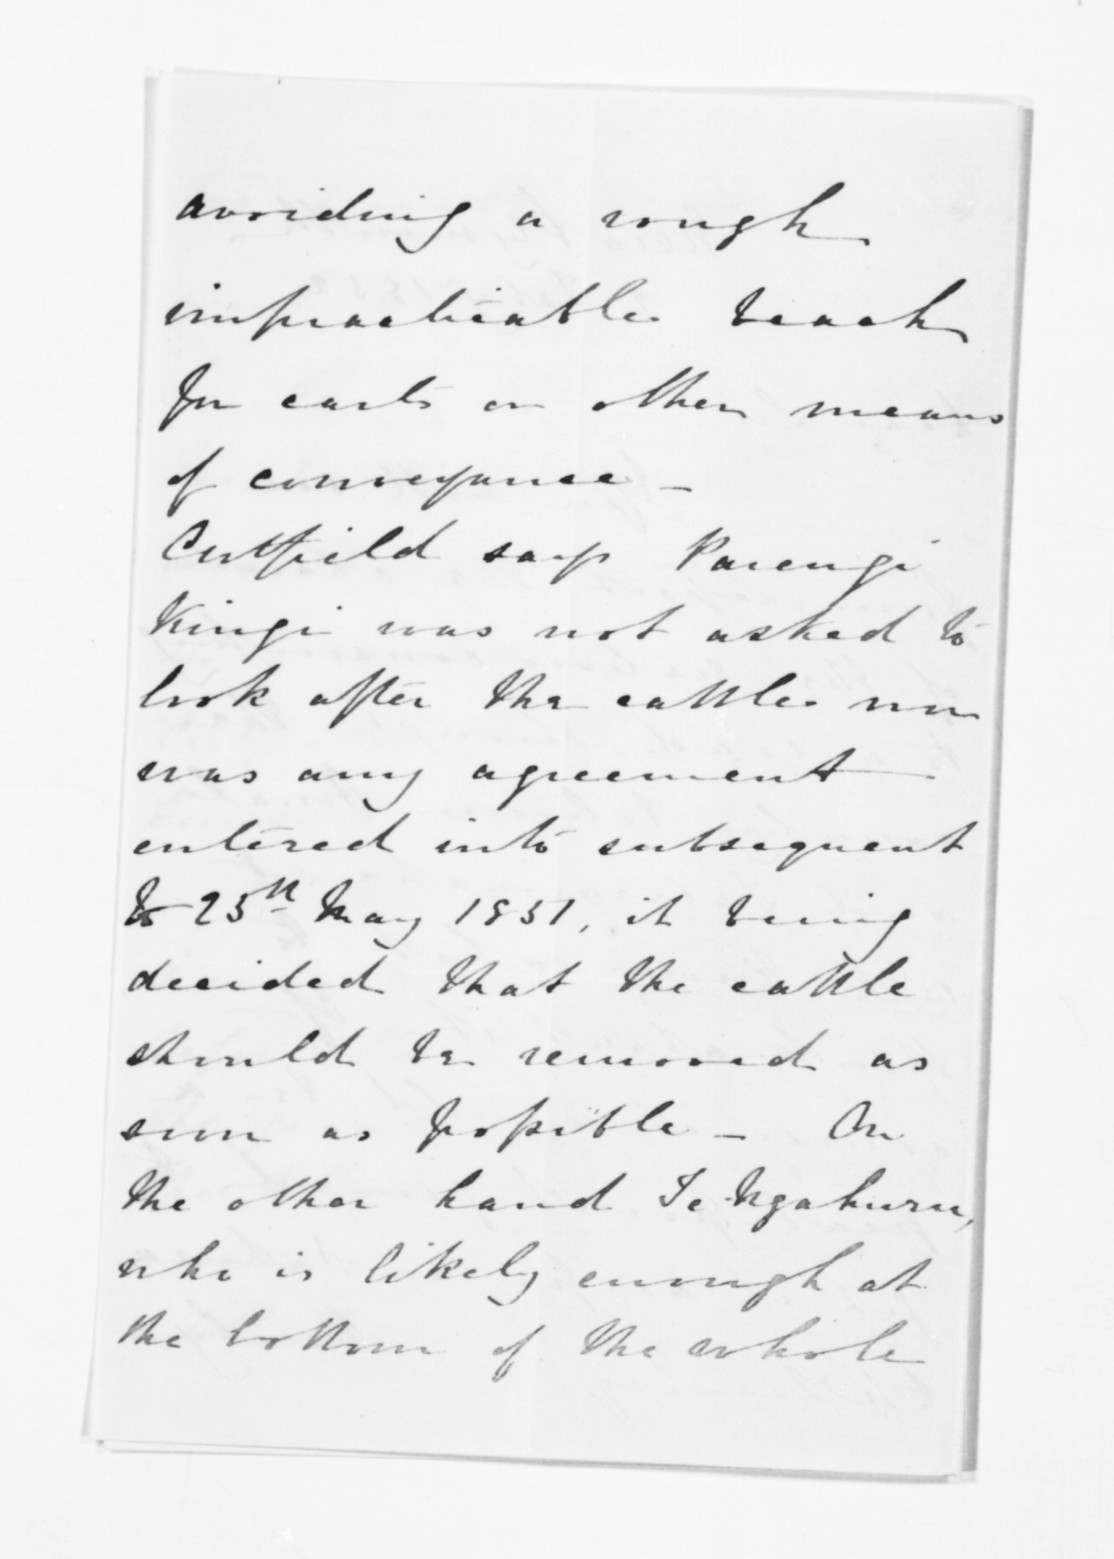 avoiding a rough
impracticable beach
for carts or other means
of conveyance —
Cutfield says Parengi
Kingi was not asked to
look after the cattle nor
was any agreement
entered into subsequent
to 25th May 1851, it being
decided that the cattle
should be removed as
soon as possible — On
the other hand Te Ngahuru,
who is likely enough at
the bottom of the whole